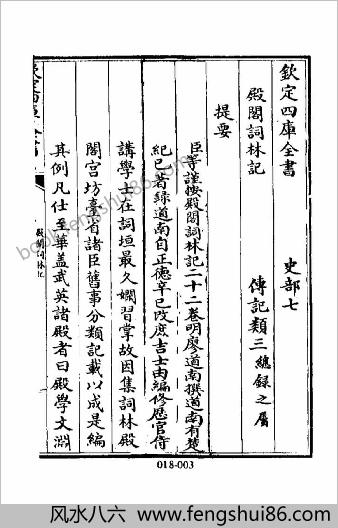 欽定四庫全書
史部七
殿閣詞林記
傳記類三總錄之屬
提要
臣等謹按殿閣詞林記二十二卷明廖道南撰道南有楚
紀已著錄道南自正德辛巳改庶吉士由編修歴官侍
講學士在詞垣最久嫻習掌故因集詞林殿
閣宮坊臺省諸臣舊事分類記載以成是編
其例凡仕至華蓋武英諸殿者曰殿學文淵
殿閣詞林記
018-003
book.fengshui86.com
风水八六 - www.fengshui86.com